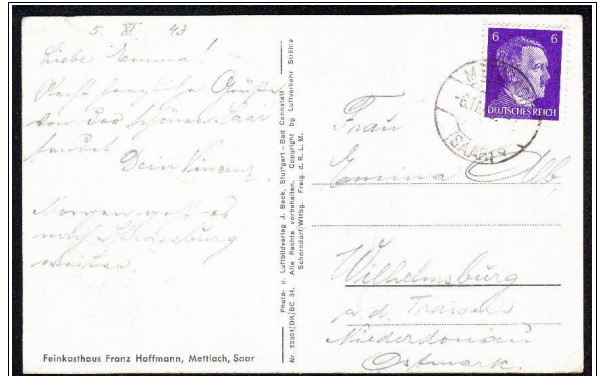 5. XI 43
Liebe Emma!
Recht herzliche Grüße
von der schönen Saar
sendet
Dein Vincenz.
Morgen geht es
nach Strassburg
weiter.
Feinkosthaus Franz Hoffmann, Mettlach, Saar
Nr. 22301/DK/BC 34.
Photo- u. Luftbildverlag J. Beck, Stuttgart - Bad Cannstatt
Alle Rechte vorbehalten. Copyright by Luftverkehr Strähle
Schorndorf/Wttbg. Freig. d. R. L. M.
6 6
DEUTSCHES REICH
(SAAR)
Frau
Emma
Wilhelmsburg
a. d. Traisen
Niederdonau
Ostmark.